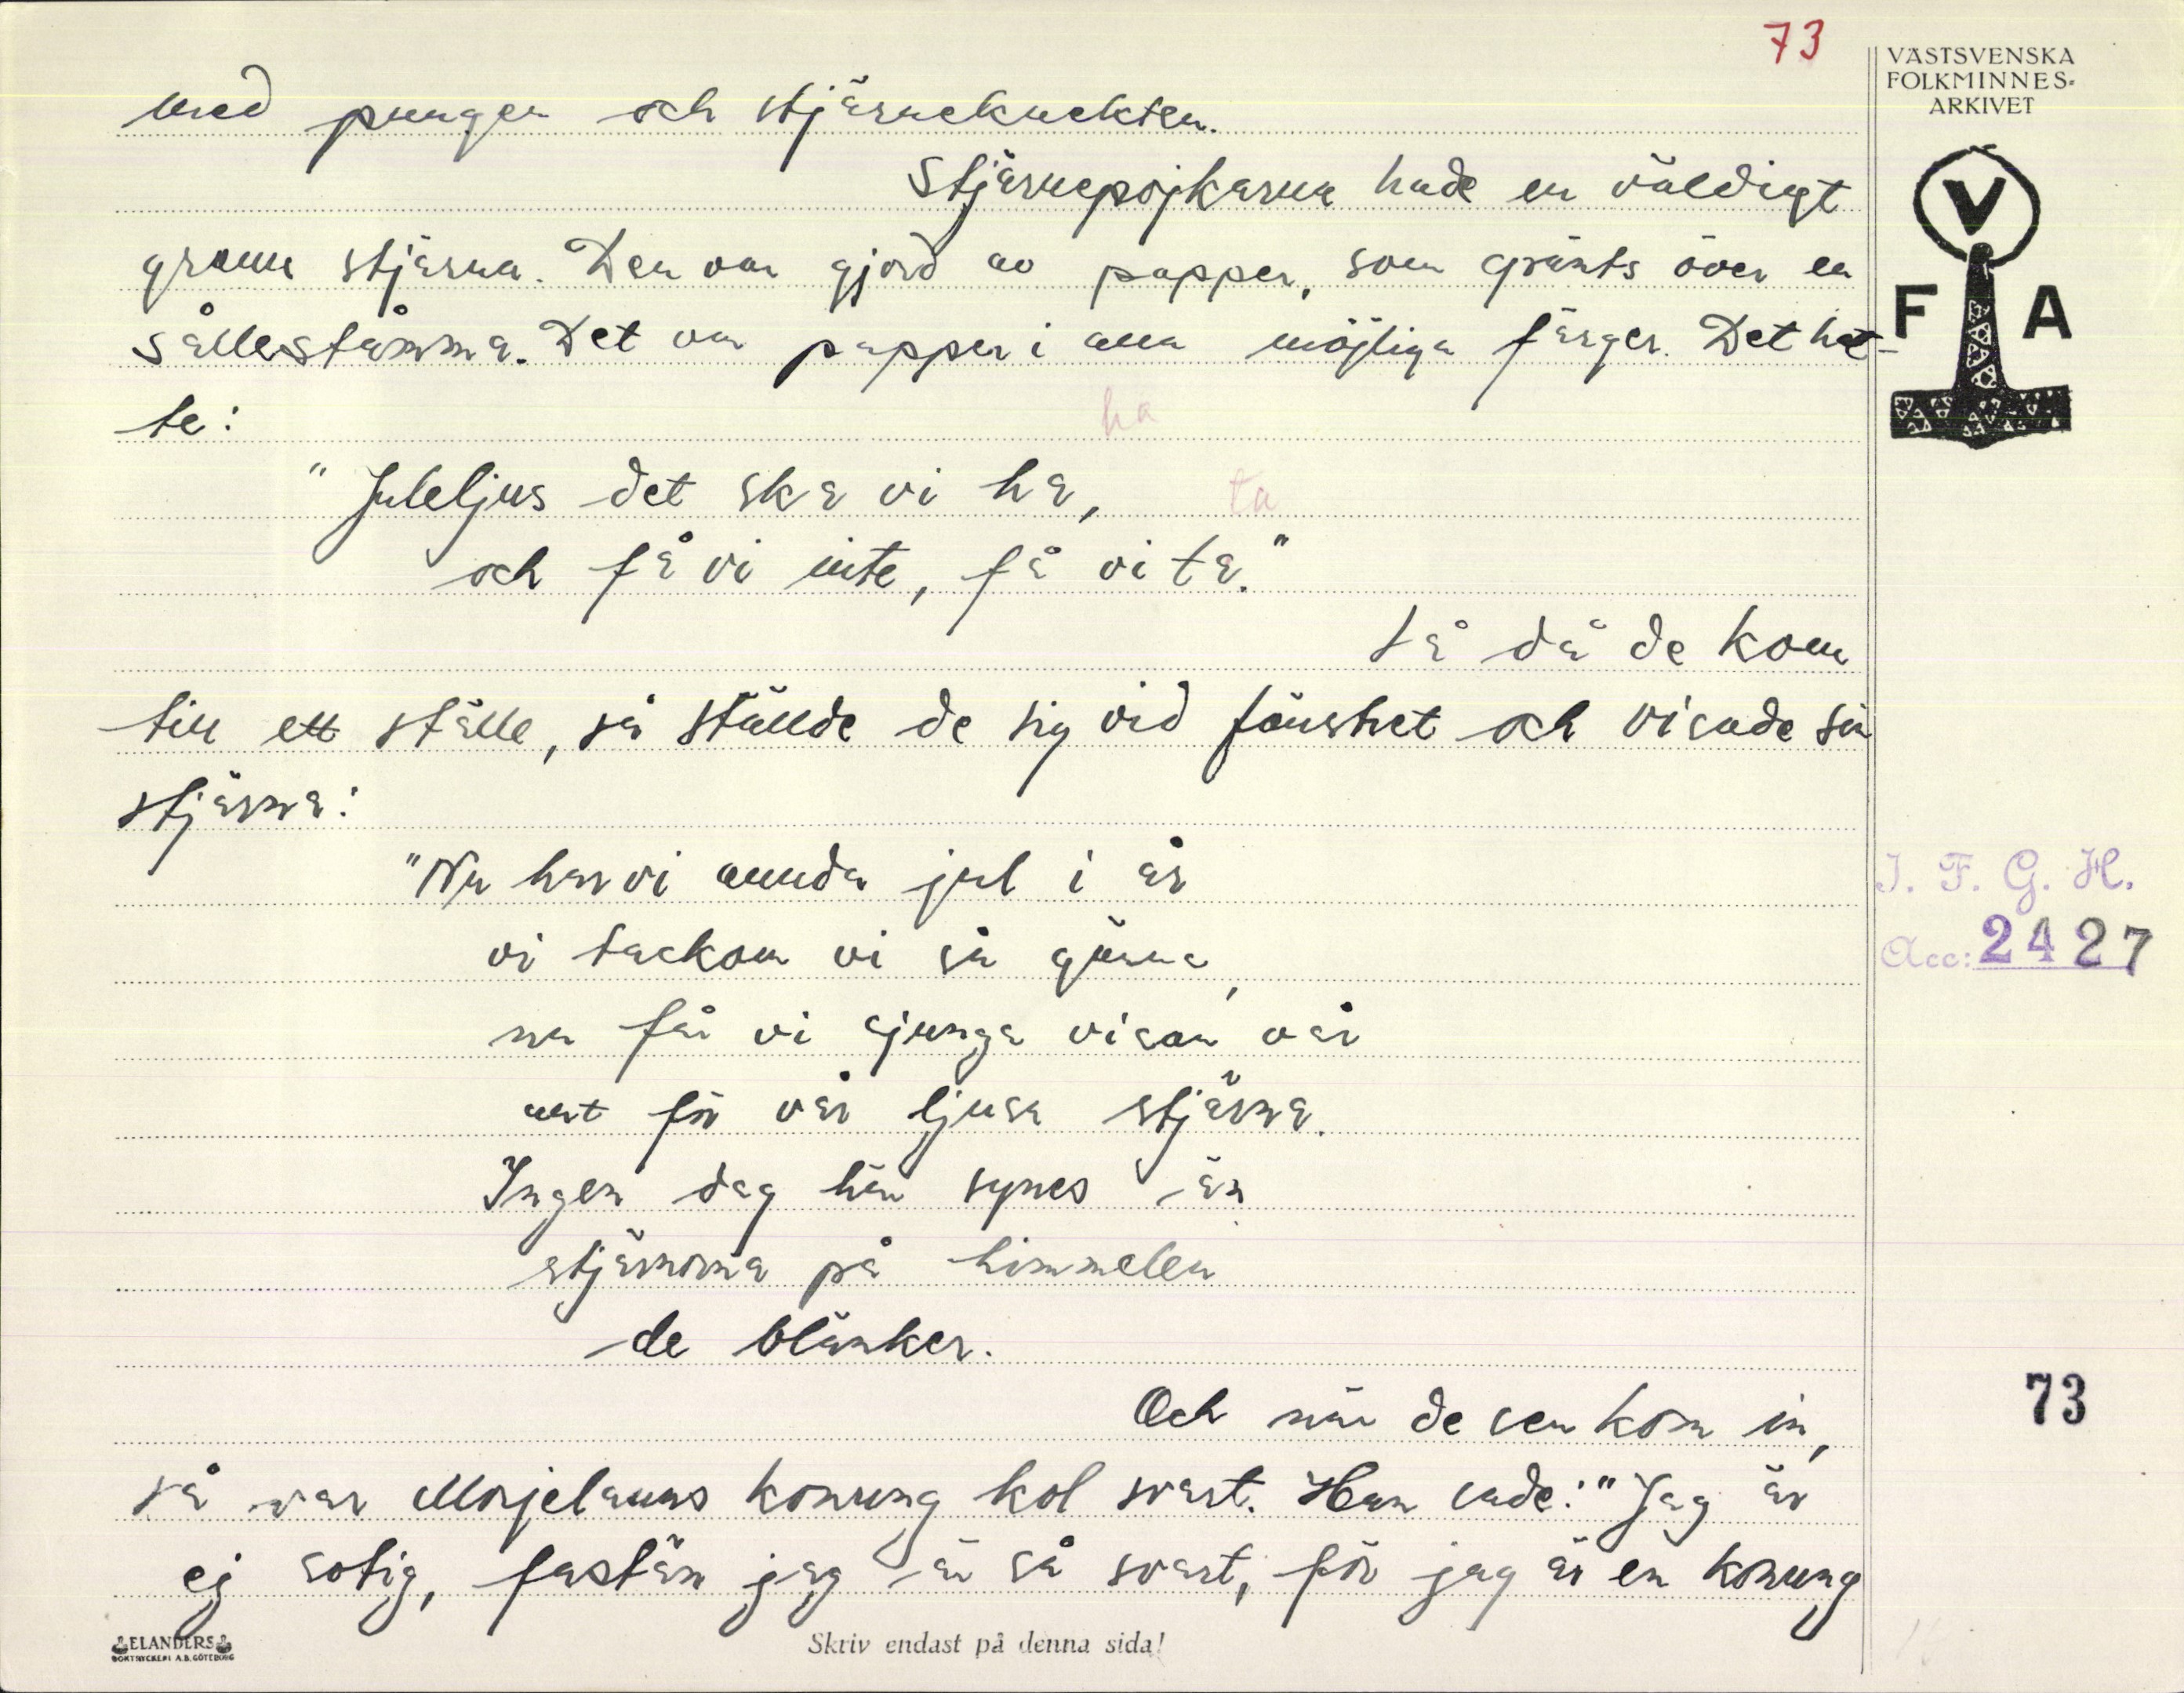 73
VÄSTSVENSKA
FOLKMINNES-
ARKIVET
V
F A
med pungen och stjärneknekten.
Stjärnepojkarna hade en väldigt
grann stjärna. Den var gjord av papper, som gränts över en
sållestomma. Det var papper i alla möjliga färger. Det het-
te:
ha
"Juleljus det ska vi ha,
ta
och få vi inte, få vi ta."
Så då de kom
till ett ställe, så ställde de sig vid fönstret och visade sin
stjärna:
"Nu har vi annda jul i år
vi tackom vi så gärna,
nu får vi sjunga visan vår
ut för vår ljusa stjärna.
Ingen dag här synes än
stjärnorna på himmelen
de blänker.
Och när de sen kom in,
så var Morjelanns konung kol svart. Han sade: "Jag är
ej sotig, fastän jag är så svart, för jag är en konung
I. F. G. H.
Acc: 2427
73
ELANDERS
BOKTRYCKERI A.B. GÖTEBORG
Skriv endast på denna sida!